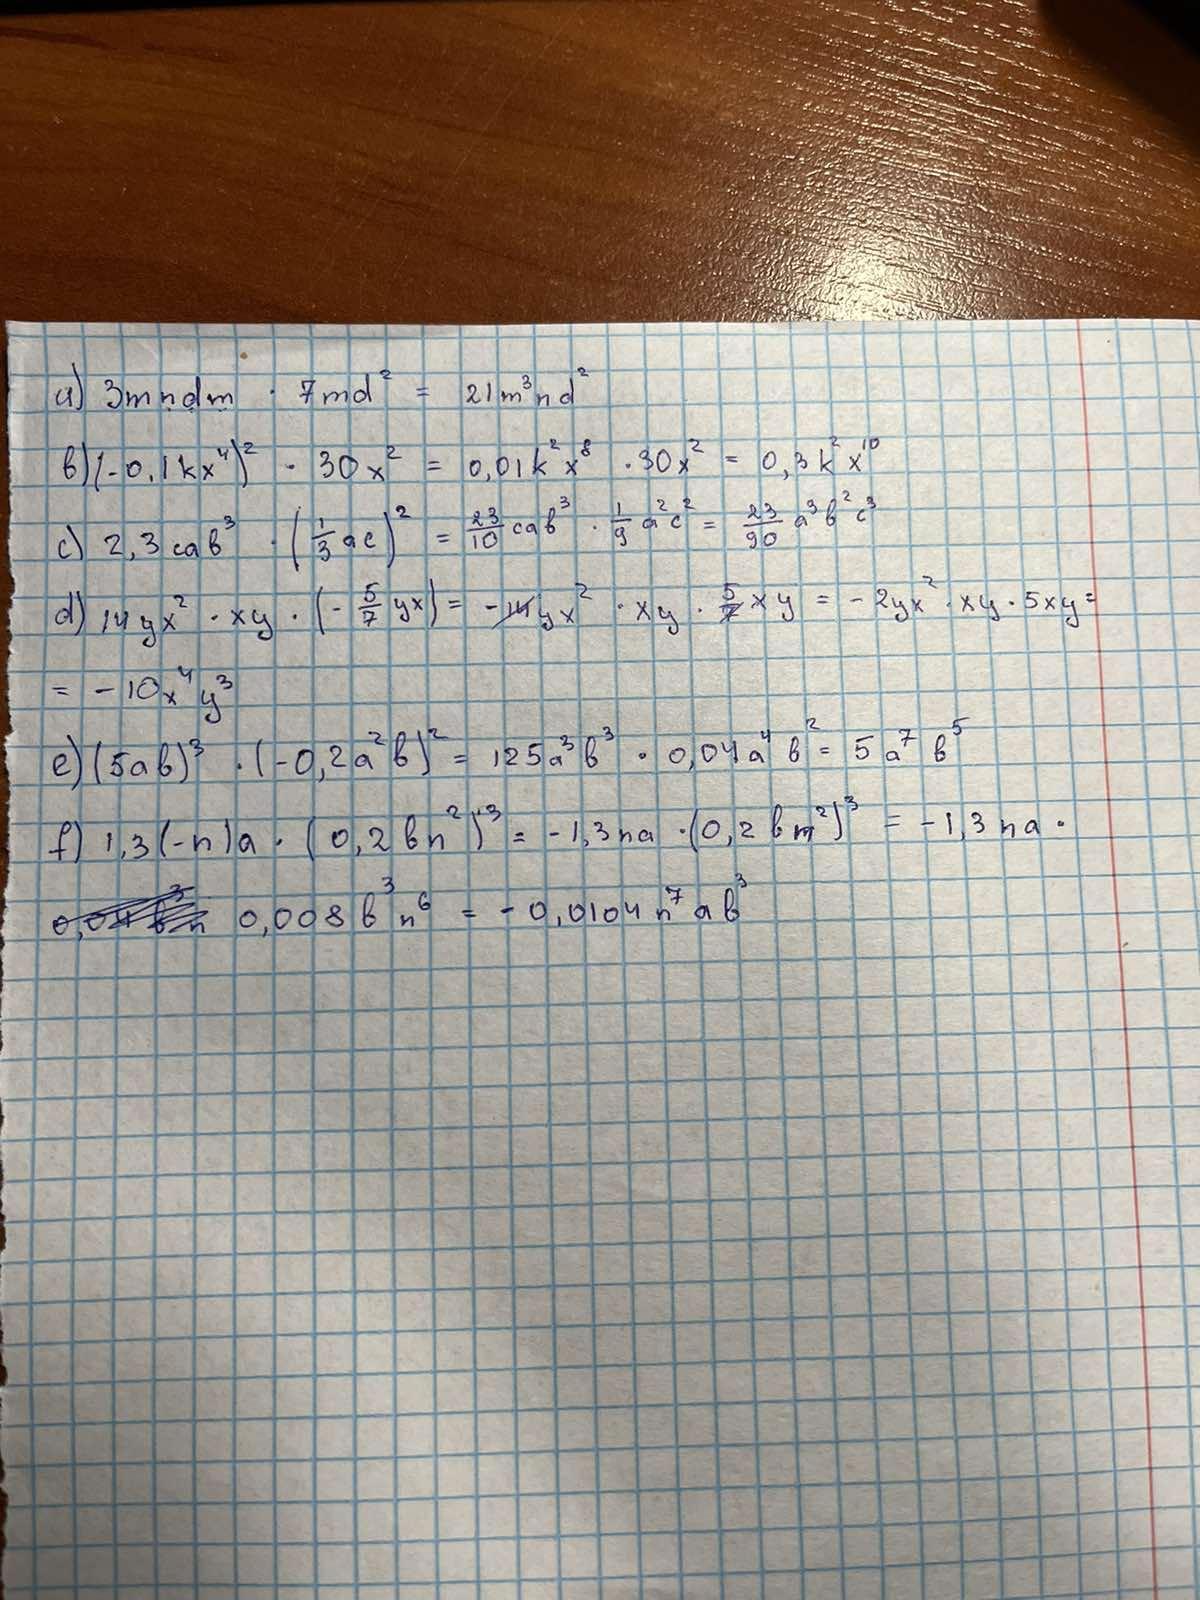 a) 3mndm · 7md² = 21m³nd²
b) (-0,1kx⁴)² · 30x² = 0,01k²x⁸ · 30x² = 0,3k²x¹⁰
c) 2,3cab³ · (1/3 ac)² = 23/10 cab³ · 1/9 a²c² = 23/90 a³b²c³
d) 14yx² · xy · (-5/7 yx) = -14yx² · xy · 5/7 xy = -2yx² · xy · 5xy =
= -10x⁴y³
e) (5ab)³ · (-0,2a²b)² = 125a³b³ · 0,04a⁴b² = 5a⁷b⁵
f) 1,3(-n)a · (0,2bn²)³ = -1,3na · (0,2bn²)³ = -1,3na ·
0,008b³n⁶ = -0,0104n⁷ab³